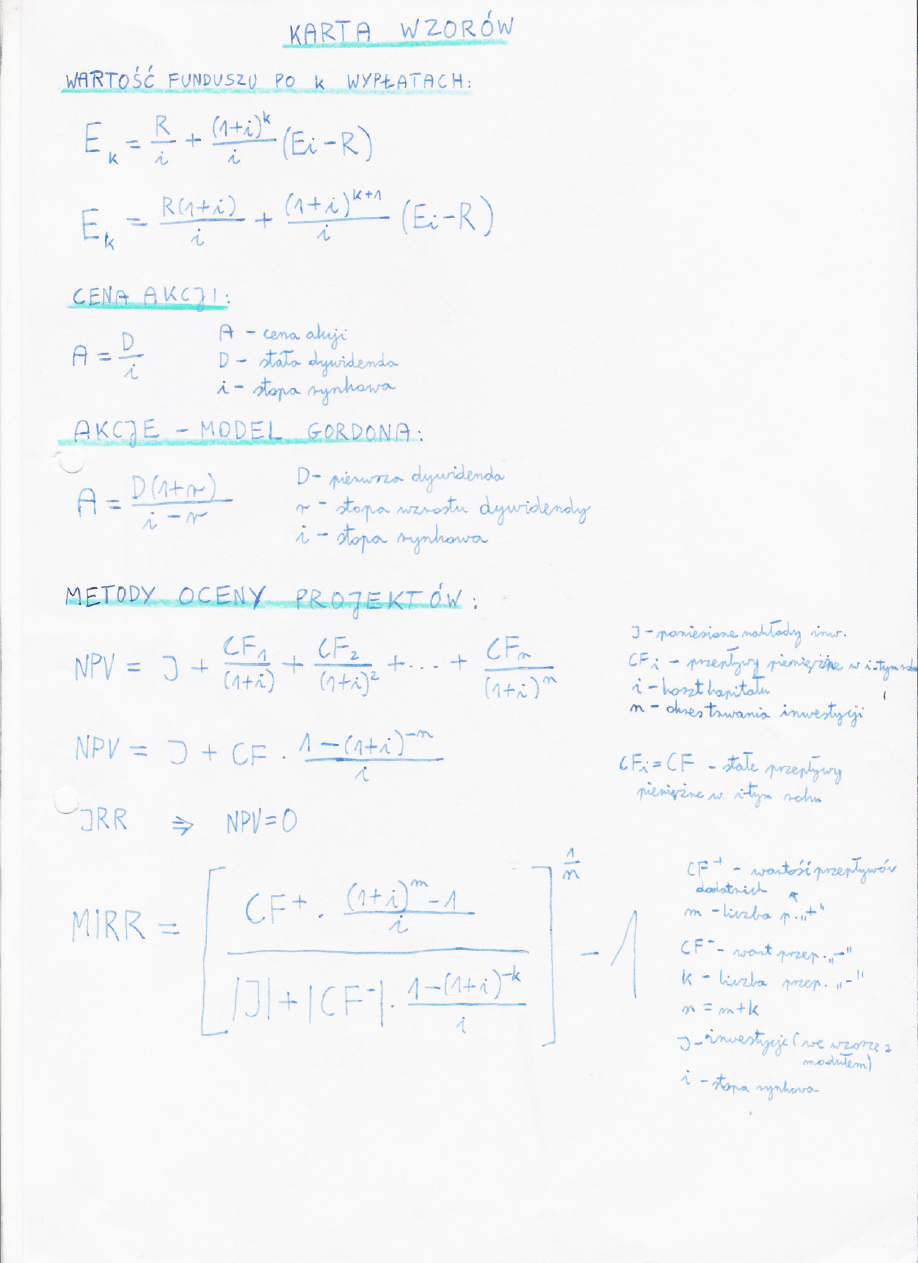 KARTA WZORÓW
WARTOŚĆ FUNDUSZU PO k WYPŁATACH:
E_k = R/i + (1+i)^k/i (Ei-R)
E_k = R(1+i)/i + (1+i)^(k+1)/i (Ei-R)
CENA AKCJI:
A = D/i
A - cena akcji
D - stała dywidenda
i - stopa rynkowa
AKCJE - MODEL GORDONA:
A = D(1+r)/(i-r)
D - pierwsza dywidenda
r - stopa wzrostu dywidendy
i - stopa rynkowa
METODY OCENY PROJEKTÓW:
NPV = J + CF_1/(1+i) + CF_2/(1+i)^2 + ... + CF_n/(1+i)^n
J - poniesione nakłady inw.
CF_i - przepływy pieniężne w i-tym roku
i - koszt kapitału
n - okres trwania inwestycji
NPV = J + CF · (1-(1+i)^-n)/i
CF_i = CF - stałe przepływy
pieniężne w i-tym roku
JRR ⇒ NPV=0
MIRR = [ (CF^+ · ((1+i)^m - 1)/i) / (|J| + |CF^-| · (1-(1+i)^-k)/i) ]^(1/n) - 1
CF^+ - wartość przepływów
dodatnich
m - liczba p. „+"
CF^- - wart przep. „-"
k - liczba przep. „-"
n = m+k
J - inwestycje (we wzorze z
modułem)
i - stopa rynkowa